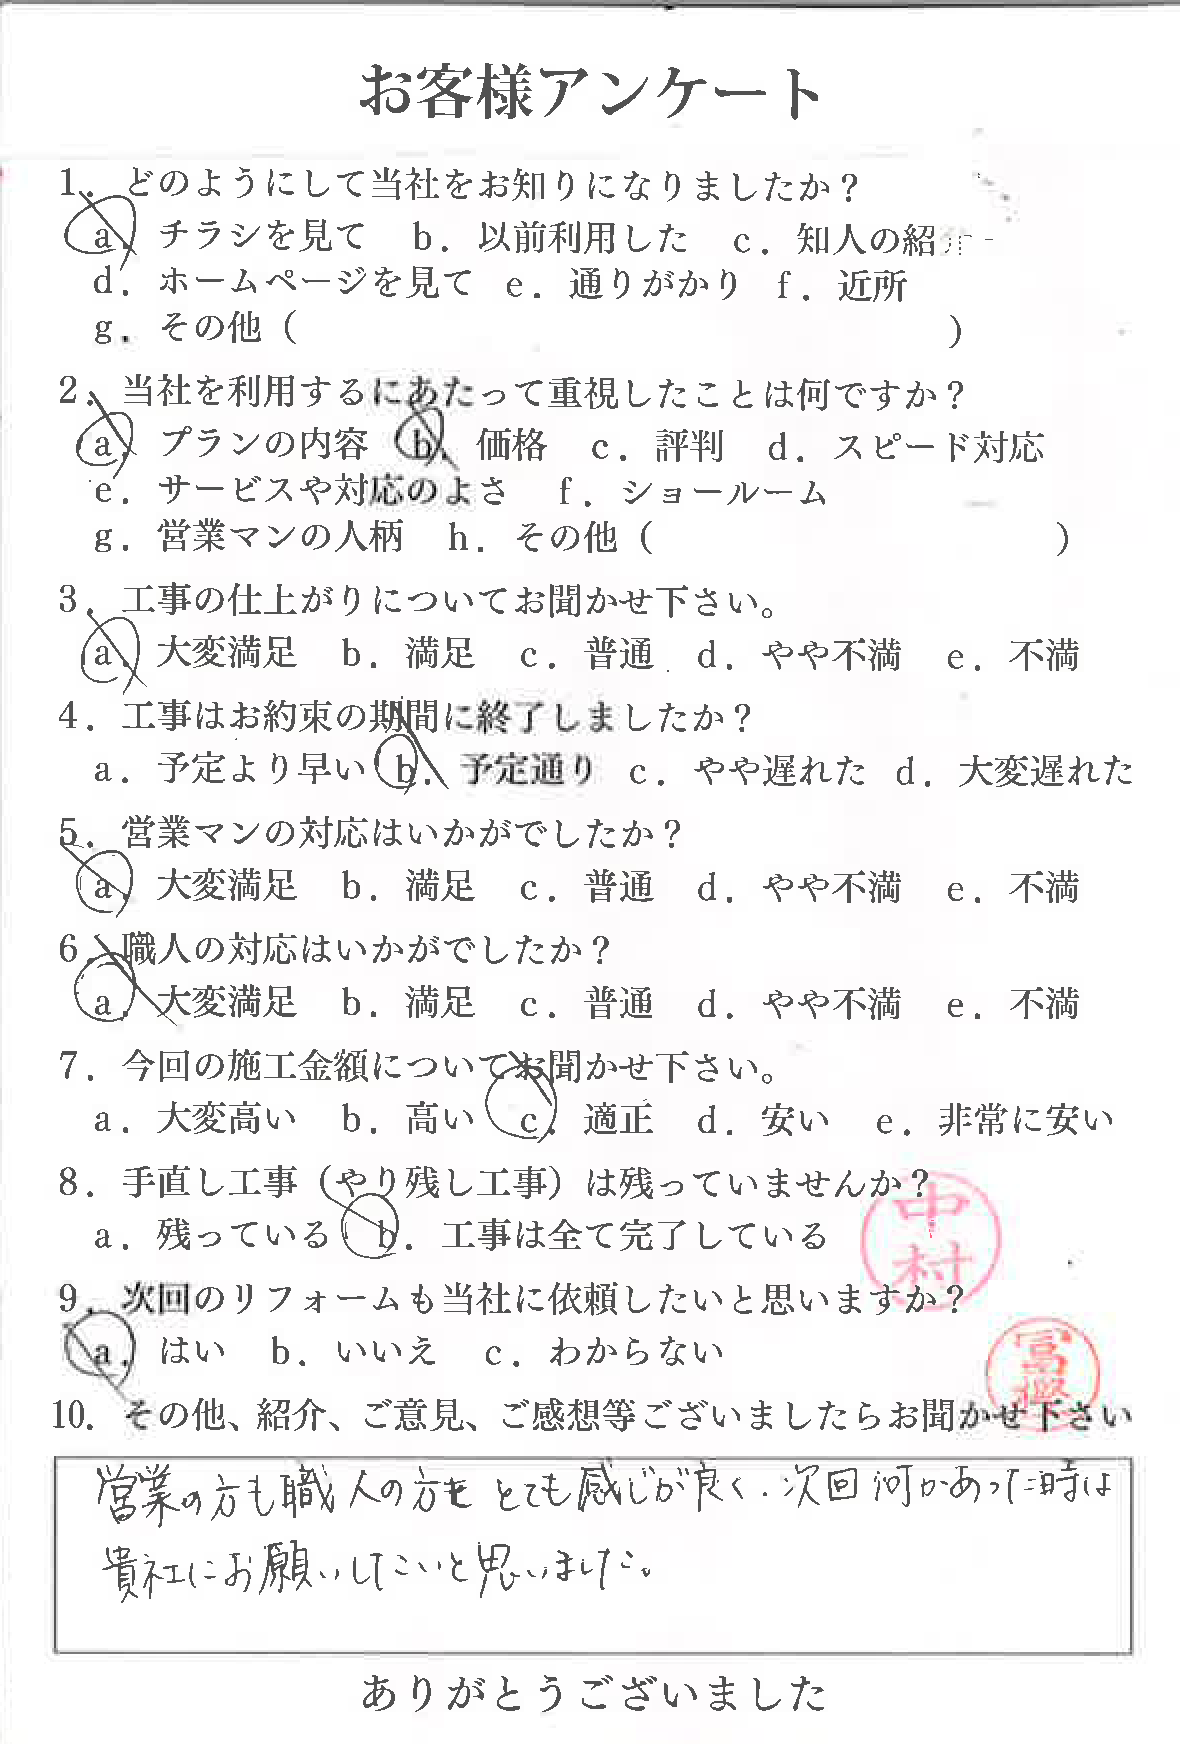 お客様アンケート
1．どのようにして当社をお知りになりましたか？
a．チラシを見て　b．以前利用した　c．知人の紹
d．ホームページを見て　e．通りがかり　f．近所
g．その他（　　　　　　　　　　　　　　　　　　）
2．当社を利用するにあたって重視したことは何ですか？
a．プランの内容　b．価格　c．評判　d．スピード対応
e．サービスや対応のよさ　f．ショールーム
g．営業マンの人柄　h．その他（　　　　　　　　　　　）
3．工事の仕上がりについてお聞かせ下さい。
a．大変満足　b．満足　c．普通　d．やや不満　e．不満
4．工事はお約束の期間に終了しましたか？
a．予定より早い　b．予定通り　c．やや遅れた　d．大変遅れた
5．営業マンの対応はいかがでしたか？
a．大変満足　b．満足　c．普通　d．やや不満　e．不満
6．職人の対応はいかがでしたか？
a．大変満足　b．満足　c．普通　d．やや不満　e．不満
7．今回の施工金額についてお聞かせ下さい。
a．大変高い　b．高い　c．適正　d．安い　e．非常に安い
8．手直し工事（やり残し工事）は残っていませんか？
a．残っている　b．工事は全て完了している
中村
9．次回のリフォームも当社に依頼したいと思いますか？
a．はい　b．いいえ　c．わからない
10．その他、紹介、ご意見、ご感想等ございましたらお聞かせ下さい
営業の方も職人の方もとても感じが良く、次回何かあった時は
貴社にお願いしたいと思いました。
ありがとうございました